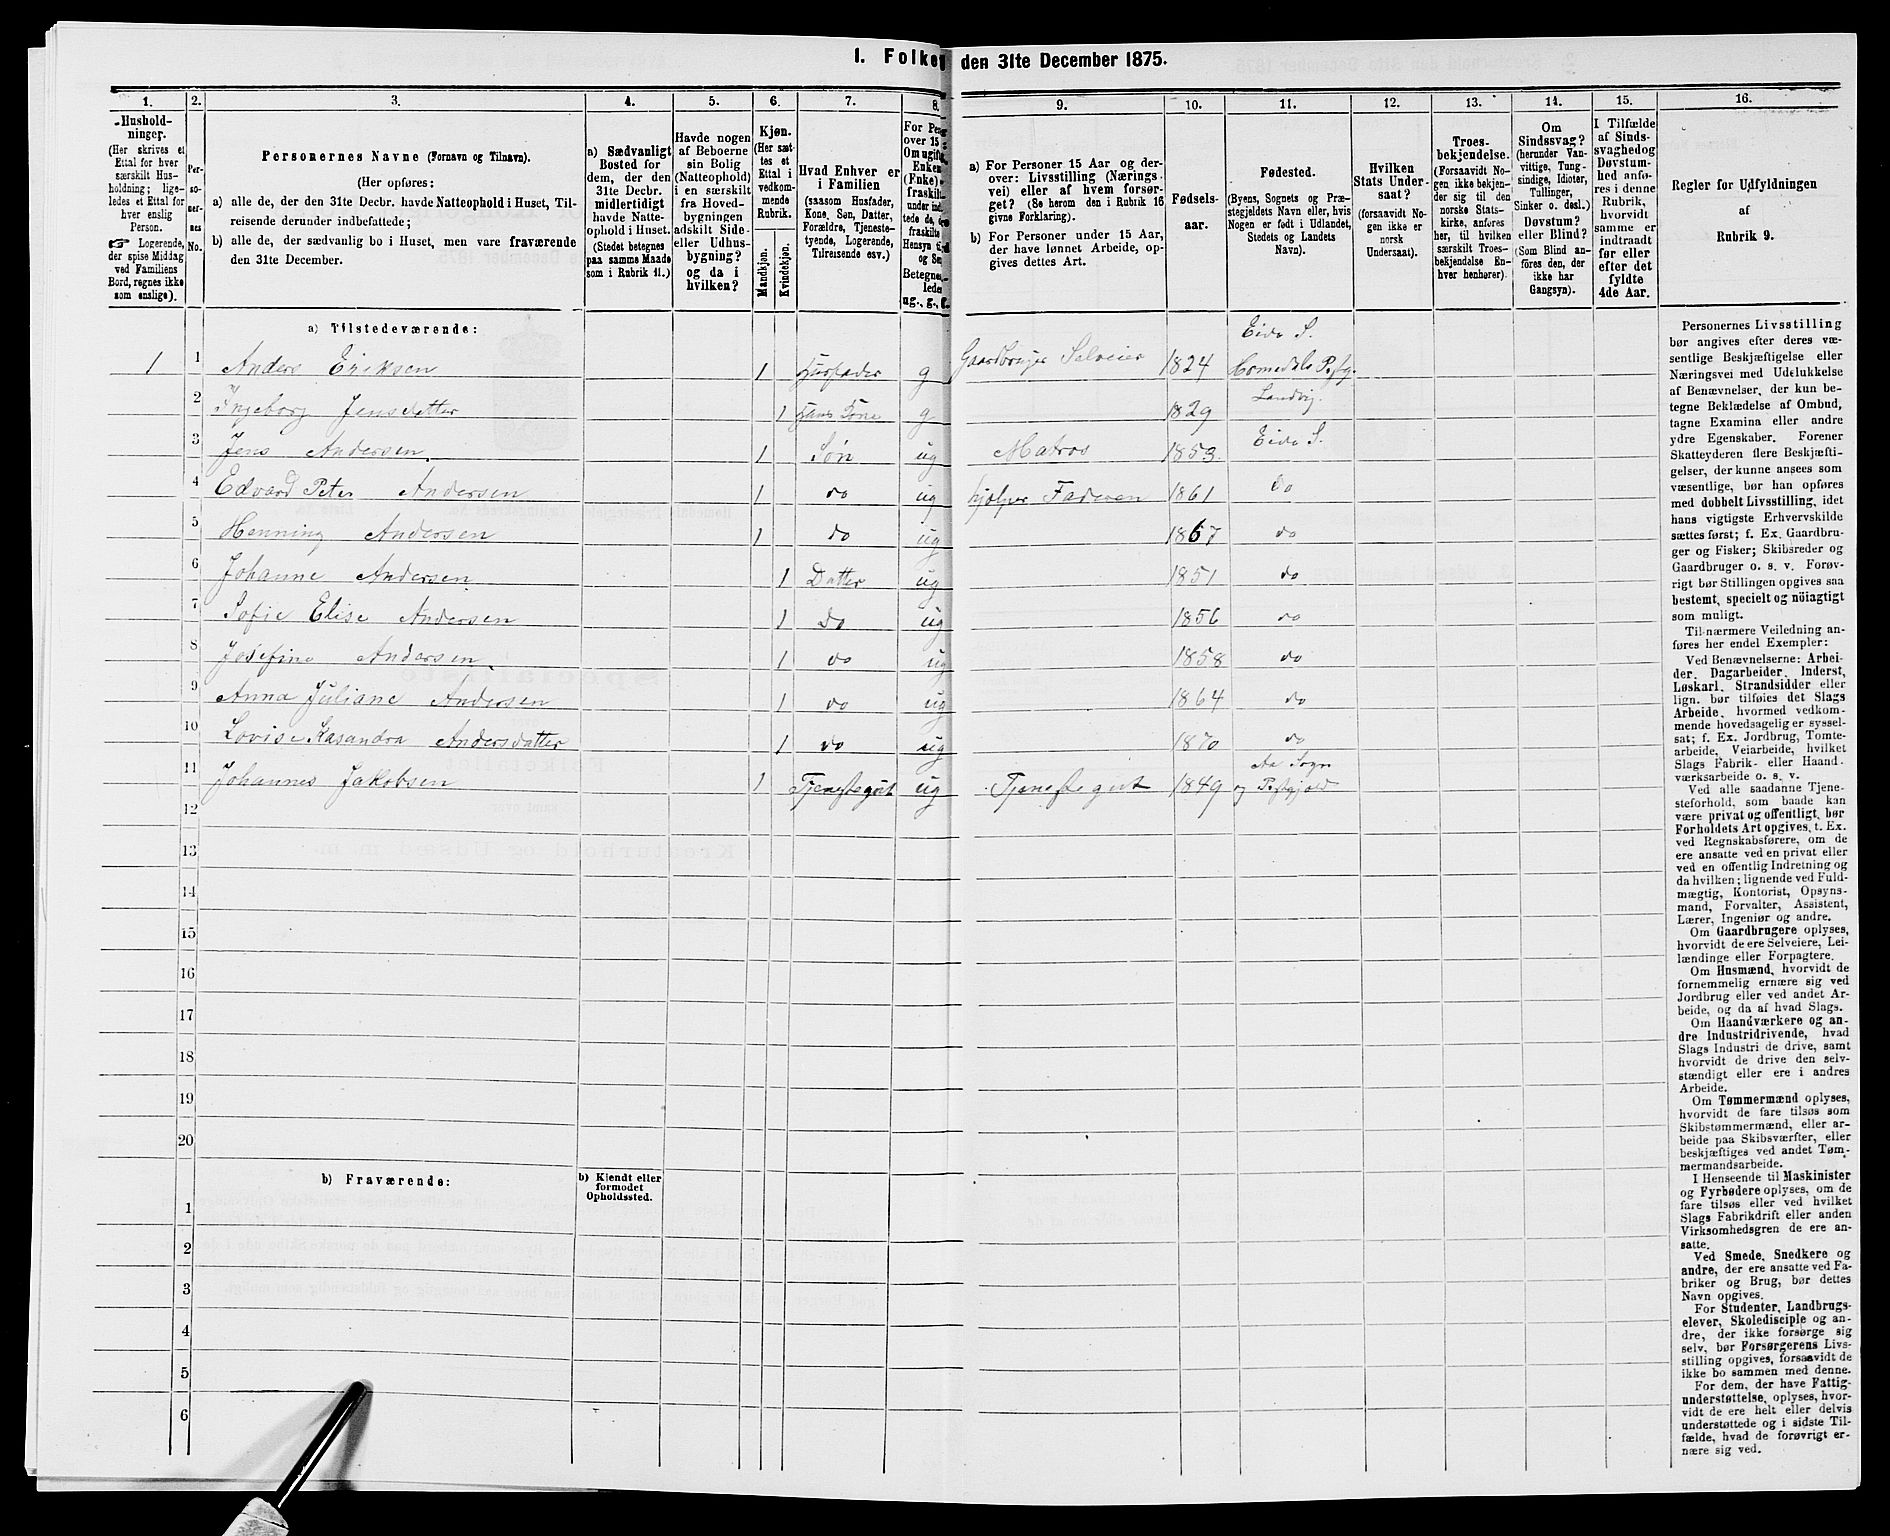 I. Folke den 31te December 1875.
1. 2. 3. 4. 5. 6. 7. 8. 9. 10. 11. 12. 13. 14. 15. 16.
Hushold-
ninger.
(Her skrives et
Ettal for hver
særskilt Hus-
holdning; lige-
ledes et Ettal for
hver enslig
Person.
☞ Logerende,
der spise Middag
ved Familiens
Bord, regnes ikke
som enslige).
Per-
so-
ner-
nes
No.
Personernes Navne (Fornavn og Tilnavn).
(Her opføres:
a) alle de, der den 31te Decbr. havde Natteophold i Huset, Til-
reisende derunder indbefattede;
b) alle de, der sædvanlig bo i Huset, men vare fraværende
den 31te December.
a) Sædvanligt
Bosted for
dem, der den
31te Decbr.
midlertidigt
havde Natte-
ophold i Huset.
(Stedet betegnes
paa samme Maade
som i Rubrik 11.)
Havde nogen
af Beboerne
sin Bolig
(Natteophold)
i en særskilt
fra Hoved-
bygningen
adskilt Side-
eller Udhus-
bygning?
og da i
hvilken?
Kjøn.
(Her sæt-
tes et
Ettal i
vedkom-
mende
Rubrik.
Mandkjøn.
Kvindekjøn.
Hvad Enhver er
i Familien
(saasom Husfader,
Kone, Søn, Datter,
Forældre, Tjeneste-
tyende, Logerende,
Tilreisende osv.)
For Pers
over 15
Om ugift,
Enken
(Enke)
fraskilt
under ind
tede de,
fraskilte
Hensyn
og Sen
Betegnes
lede
ug., g.,
a) For Personer 15 Aar og der-
over: Livsstilling (Nærings-
vei) eller af hvem forsør-
get? (Se herom den i Rubrik 16
givne Forklaring).
b) For Personer under 15 Aar,
der have lønnet Arbeide, op-
gives dettes Art.
Fødsels-
aar.
Fødested.
(Byens, Sognets og Præ-
stegjeldets Navn eller, hvis
Nogen er født i Udlandet,
Stedets og Landets
Navn).
Hvilken
Stats Under-
saat?
(forsaavidt No-
gen ikke er
norsk
Undersaat).
Troes-
bekjendelse.
(Forsaavidt No-
gen ikke bekjen-
der sig til den
norske Stats-
kirke, anføres
her, til hvilken
særskilt Troes-
bekjendelse En-
hver henhører).
Om
Sindssvag?
(herunder Van-
vittige, Tung-
sindige, Idioter,
Tullinger,
Sinker o. desl.)
Døvstum?
eller Blind?
(Som Blind an-
føres den, der
ikke har
Gangsyn).
I Tilfælde
af Sinds-
svaghedog
Døvstum-
hed anfø-
res i denne
Rubrik,
hvorvidt
samme er
indtraadt
før eller
efter det
fyldte
4de Aar.
Regler for Udfyldningen
af
Rubrik 9.
a) Tilstedeværende:
1 1 Anders Eriksen 1 Husfader g Gaardbruger Selveier 1824 Eide S. Homedals Prstg.
2 Ingeborg Jensdatter 1 Hans Kone g 1829 Landvig.
3 Jens Andersen 1 Søn ug Matros 1853. Eide S.
4 Edvard Peter Andersen 1 do ug hjelper Faderen 1861 do
5 Henning Andersen 1 do ug 1867 do
6 Johanne Andersen 1 Datter ug 1851 do
7 Sofie Elise Andersen 1 do ug 1856 do
8 Josefine Andersen 1 do ug 1858 do
9 Anna Juliane Andersen 1 do ug 1864 do
10 Lovise Kasandra Andersdatter 1 do ug 1870 do
11 Johannes Jakobsen 1 Tjenestegut ug Tjenestegut 1849 Aa Sogn og Præstgjeld
12
13
14
15
16
17
18
19
20
b) Fraværende:
b) Kjendt eller
formodet
Opholdssted.
1
2
3
4
5
6
Personernes Livsstilling
bør angives efter deres væ-
sentlige Beskjæftigelse eller
Næringsvei med Udelukkelse
af Benævnelser, der kun be-
tegne Beklædelse af Ombud,
tagne Examina eller andre
ydre Egenskaber. Forener
Skatteyderen flere Beskjæfti-
gelser, der kunne ansees som
væsentlige, bør han opføres
med dobbelt Livsstilling, idet
hans vigtigste Erhvervskilde
sættes først; f. Ex. Gaardbru-
ger og Fisker; Skibsreder og
Gaardbruger o. s. v. Forøv-
rigt bør Stillingen opgives saa
bestemt, specielt og nöiagtigt
som muligt.
Til nærmere Veiledning an-
føres her endel Exempler:
Ved Benævnelserne: Arbei-
der, Dagarbeider, Inderst,
Løskarl, Strandsidder eller
lign. bør tilføies det Slags
Arbeide, hvormed vedkom-
mende hovedsagelig er syssel-
sat; f. Ex. Jordbrug, Tomte-
arbeide, Veiarbeide, hvilket
Slags Fabrik- eller Haand-
værksarbeide o. s. v.
Ved alle saadanne Tjene-
steforhold, som baade kan
være privat og offentligt, bør
Forholdets Art opgives, t. Ex.
ved Regnskabsførere, om de
ere ansatte ved en privat eller
ved en offentlig Indretning og
da hvilken; lignende ved Fuld-
mægtig, Kontorist, Opsyns-
mand, Forvalter, Assistent,
Lærer, Ingeniør og andre.
Om Gaardbrugere oplyses,
hvorvidt de ere Selveiere, Lei-
lændinge eller Forpagtere.
Om Husmænd, hvorvidt de
fornemmelig ernære sig ved
Jordbrug eller ved andet Ar-
beide, og da af hvad Slags.
Om Haandværkere og an-
dre Industridrivende, hvad
Slags Industri de drive, samt
hvorvidt de drive den selv-
stændigt eller ere i andres
Arbeide.
Om Tømmermænd oplyses,
hvorvidt de fare tilsøs som
Skibstømmermænd, eller ar-
beide paa Skibsværfter, eller
beskjæftiges ved andet Tøm-
mermandsarbeide.
I Henseende til Maskinister
og Fyrbødere oplyses, om de
fare tilsøs eller ved hvilket
Slags Fabrikdrift eller anden
Virksomhedsgren de ere an-
satte.
Ved Smede, Snedkere og
andre, der ere ansatte ved Fa-
briker og Brug, bør dettes
Navn opgives.
For Studenter, Landbrugs-
elever, Skoledisciple og an-
dre, der ikke forsørge sig
selv, bør Forsørgerens Livs-
stilling opgives, forsaavidt de
ikke bo sammen med denne.
For dem, der have Fattig-
understøttelse, oplyses, hvor-
vidt de ere helt eller delvis
understøttede og i sidste Til-
fælde, hvad de forøvrigt er-
nære sig ved.